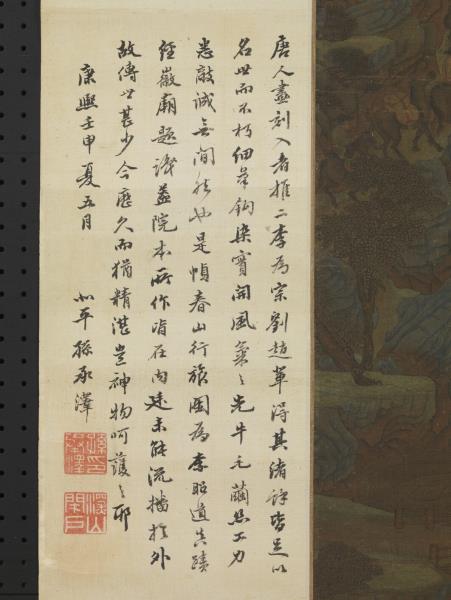 唐人畫刻入者推二李為宗劉趙輩得其緒餘皆足以
名世而不朽細筆鈎染實開風氣之先牛毛繭絲工力
悉敵誠無間然也是幀春山行旅圖為李昭道真蹟
經徽廟題識蓋院本所作皆在內廷未能流播於外
故傳世甚少今歷久而猶精湛豈神物呵護之耶
康熙壬申夏五月
北平孫承澤